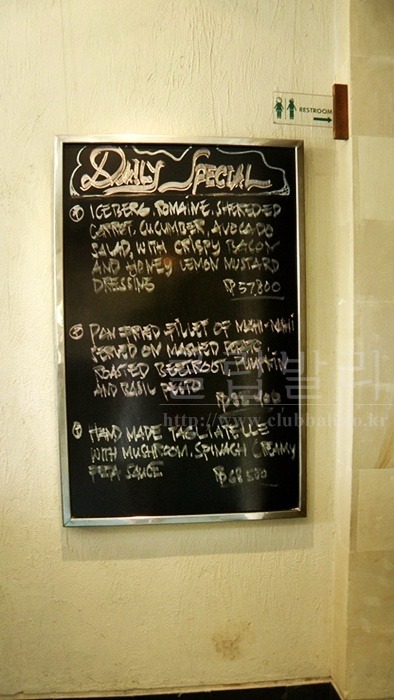 RESTROOM
DAILY SPECIAL
ICEBERG, ROMAINE, SHEREDED
CARROT, CUCUMBER, AVOCADO
SALAD, WITH CRISPY BACON
AND HONEY LEMON MUSTARD
DRESSING
Rp 57.800
PAN FRIED FILLET OF MAHI-MAHI
SERVED ON MASHED
ROASTED BEETROOT, PUMPKIN
AND BASIL PESTO
클럽발리
http://www.clubbali.co.kr
HAND MADE TAGLIATELLE
WITH MUSHROOM, SPINACH CREAMY
SAUCE
Rp 68.500